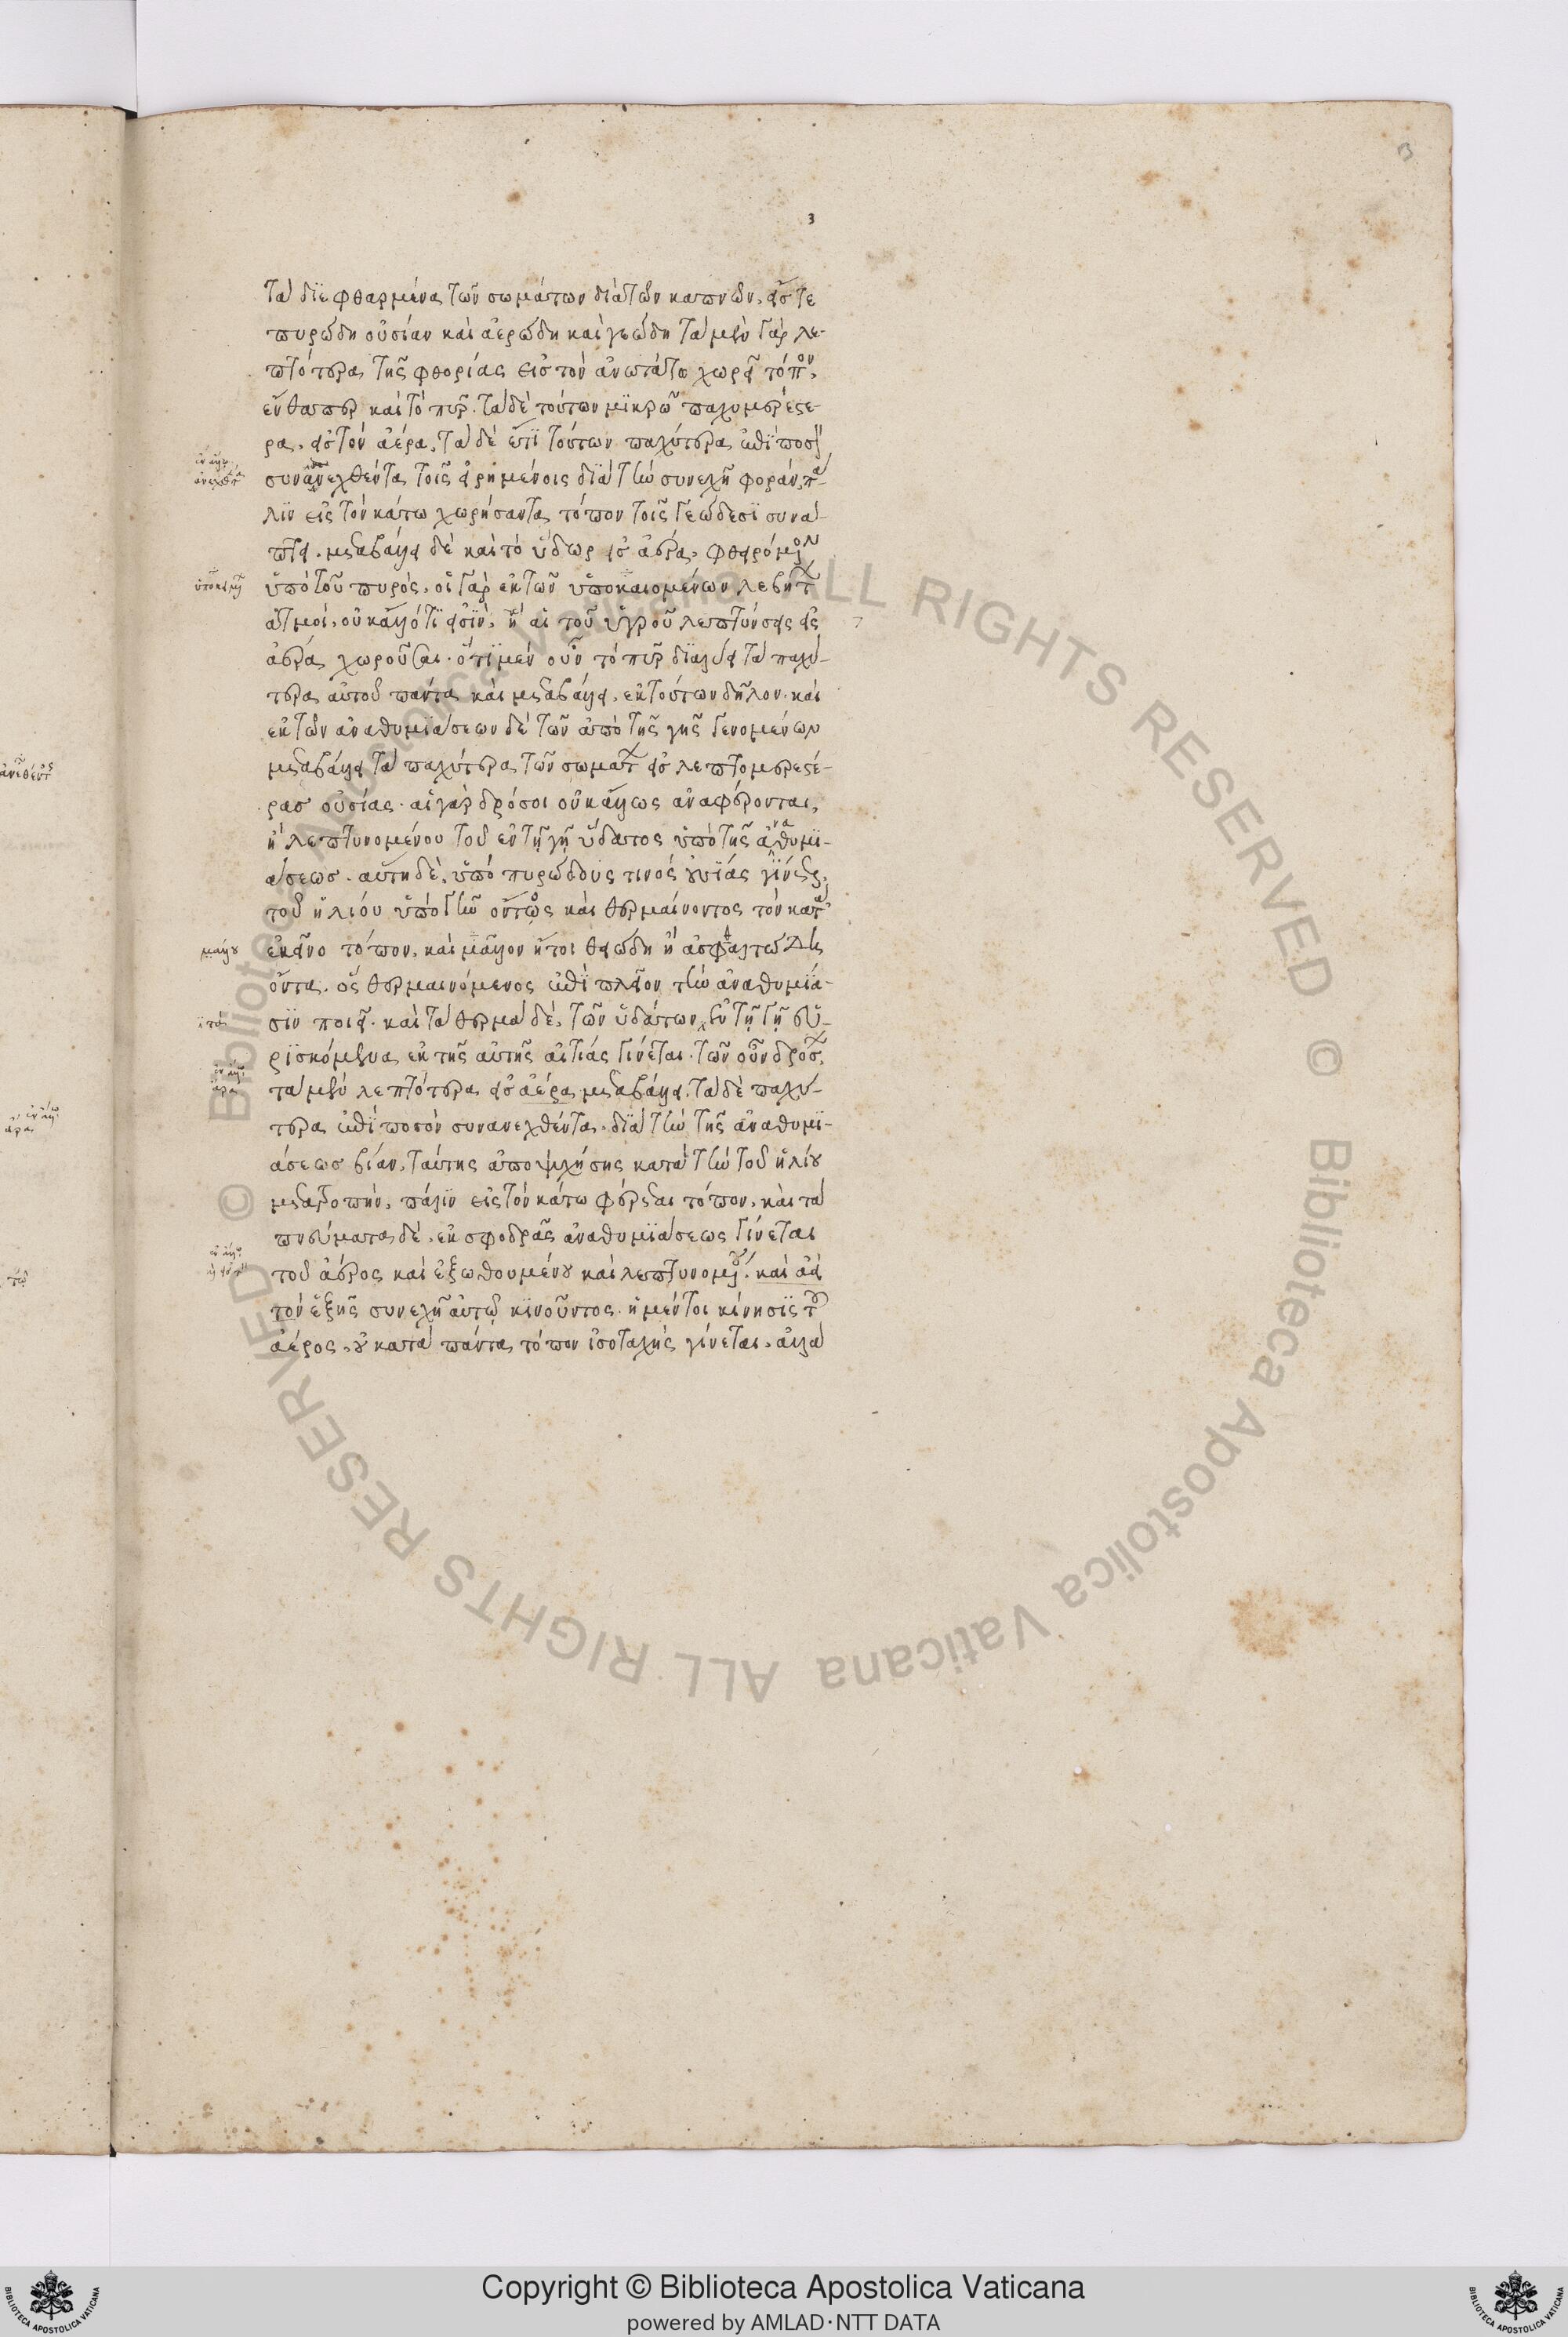 3
3
τὰ διεφθαρμένα τῶν σωμάτων διὰ τῶν καπνῶν, εἴς τε
πυρώδη οὐσίαν καὶ ἀερώδη καὶ γεώδη τὰ μὲν γὰρ λε-
πτότερα τῆς φθορίας εἰς τὸν ἀνωτάτω χωρεῖ τόπον,
ἔνθαπερ καὶ τὸ πῦρ. τὰ δὲ τούτων μικρῷ παχυμερέστε-
ρα, εἰς τὸν ἀέρα, τὰ δὲ ἔτι τούτων παχύτερα ἐπὶ ποσὸν
συνανελχθέντα τοῖς εἰρημένοις διὰ τὴν συνεχῆ φοράν, πά-
λιν εἰς τὸν κάτω χωρήσαντα τόπον τοῖς γεώδεσι συνά-
πτει. μεταβάλλει δὲ καὶ τὸ ὕδωρ εἰς ἀέρα, φθειρόμενον
ὑπὸ τοῦ πυρός, οἱ γὰρ ἐκ τῶν ὑποκαιομένων λεβήτων
ἀτμοί, οὐκ ἄλλό τι εἰσὶν, ἢ αἱ τοῦ ὑγροῦ λεπτύνσεις εἰς
ἀέρα χωροῦσαι. ὅτι μὲν οὖν τὸ πῦρ διαλύει τὰ παχύ-
τερα αὐτοῦ πάντα καὶ μεταβάλλει, ἐκ τούτων δῆλον. καὶ
ἐκ τῶν ἀναθυμιάσεων δὲ τῶν ἀπὸ τῆς γῆς γενομένων
μεταβάλλει τὰ παχύτερα τῶν σωμάτων εἰς λεπτομερεστέ-
ρας οὐσίας. αἱ γὰρ δρόσοι οὐκ ἄλλως ἀναφέρονται,
ἢ λεπτυνομένου τοῦ ἐν τῇ γῇ ὕδατος ὑπὸ τῆς ἀναθυμι-
άσεως. αὕτη δὲ, ὑπὸ πυρώδους τινὸς οὐσίας γίνεται,
τοῦ ἡλίου ὑπὸ γῆν ὄντος καὶ θερμαίνοντος τὸν κατ'
μάλλου ἐκεῖνο τόπον, καὶ μᾶλλον ἤτοι θειώδη ἢ ἀσφαλτώδη
ὄντα. ὃς θερμαινόμενος ἐπὶ πλεῖον τὴν ἀναθυμία-
σιν ποιεῖ. καὶ τὰ θερμὰ δὲ, τῶν ὑδάτων, ἐν τῇ γῇ εὑ-
ρισκόμενα ἐκ τῆς αὐτῆς αἰτίας γίνεται. τῶν οὖν δρόσων
τὰ μὲν λεπτότερα εἰς ἀέρα μεταβάλλει, τὰ δὲ παχύ-
τερα ἐπὶ ποσὸν συνανελχθέντα, διὰ τὴν τῆς ἀναθυμι-
άσεως βίαν, ταύτης ἀποψυχήσης κατὰ τὴν τοῦ ἡλίου
μετατροπήν, πάλιν εἰς τὸν κάτω φέρεται τόπον, καὶ τὰ
πνεύματα δὲ, ἐκ σφοδρᾶς ἀναθυμιάσεως γίνεται
τοῦ ἀέρος καὶ ἐξωθουμένου καὶ λεπτυνομένου, καὶ ἀεὶ
τὸν ἑξῆς συνεχῆ αὐτῷ κινοῦντος. ἡ μέντοι κίνησις τοῦ
ἀέρος, οὐ κατὰ πάντα τόπον ἰσοταχὴς γίνεται, ἀλλὰ
Copyright © Biblioteca Apostolica Vaticana
powered by AMLAD·NTT DATA